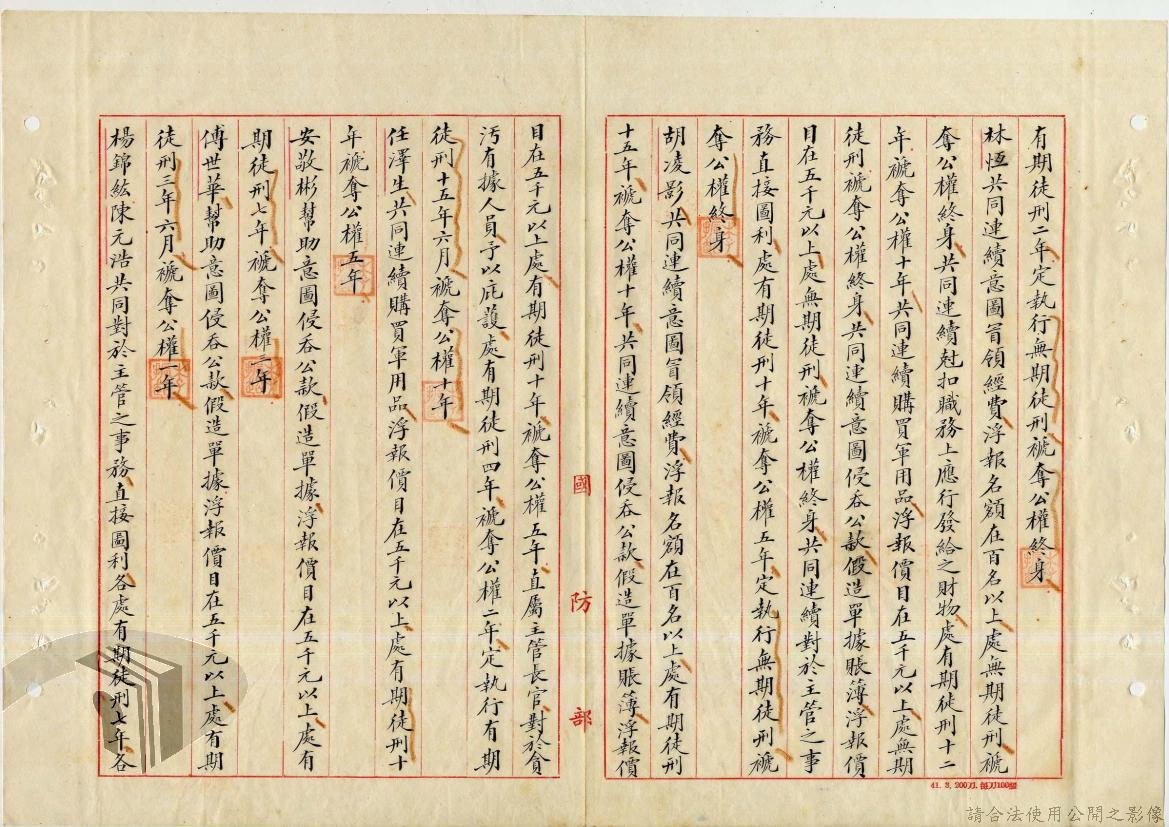 有期徒刑二年定執行無期徒刑褫奪公權終身
林恆共同連續意圖冒領經費浮報名額在百名以上處無期徒刑褫
奪公權終身共同連續尅扣職務上應行發給之財物處有期徒刑十二
年褫奪公權十年共同連續購買軍用品浮報價目在五千元以上處無期
徒刑褫奪公權終身共同連續意圖侵吞公款假造單據賬簿浮報價
目在五千元以上處無期徒刑褫奪公權終身共同連續對於主管之事
務直接圖利處有期徒刑十年褫奪公權五年定執行無期徒刑褫
奪公權終身
胡凌影共同連續意圖冒領經費浮報名額在百名以上處有期徒刑
十五年褫奪公權十年共同連續意圖侵吞公款假造單據賬簿浮報價
國防部
目在五千元以上處有期徒刑十年褫奪公權五年直屬主管長官對於貪
污有據人員予以庇護處有期徒刑四年褫奪公權二年定執行有期
徒刑十五年六月褫奪公權十年
任澤生共同連續購買軍用品浮報價目在五千元以上處有期徒刑十
年褫奪公權五年
安敬彬幫助意圖侵吞公款假造單據浮報價目在五千元以上處有
期徒刑七年褫奪公權三年
傅世華幫助意圖侵吞公款假造單據浮報價目在五千元以上處有期
徒刑三年六月褫奪公權一年
楊錦紘陳元浩共同對於主管之事務直接圖利各處有期徒刑七年各
41.3.200刀.每刀100張
請合法使用公開之影像